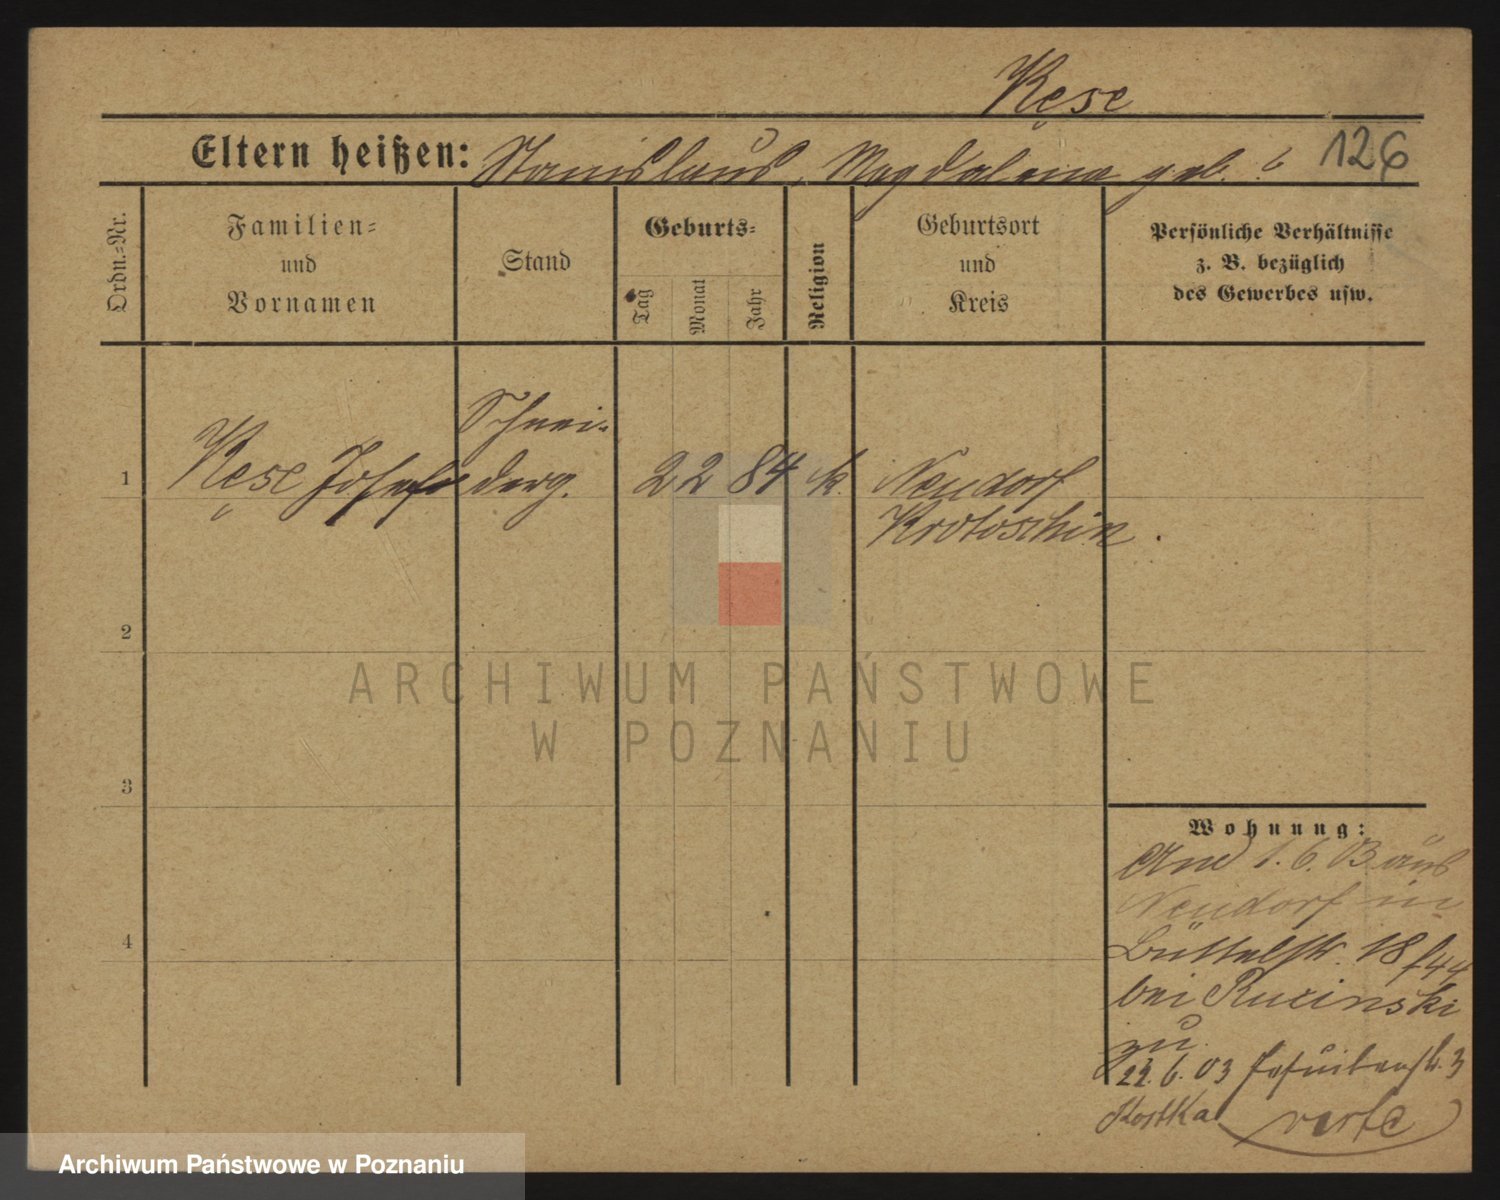 Kęse
Eltern heißen: Stanislaus, Magdalena geb. 126
Ordn.-Nr.
Familien-
und
Vornamen
Stand
Geburts-
Tag
Monat
Jahr
Religion
Geburtsort
und
Kreis
Persönliche Verhältnisse
z. B. bezüglich
des Gewerbes usw.
Schnei-
1 Kęse Josef derg. 2 2 84 k. Neudorf
Krotoschin.
2
3
4
Wohnung:
1.6.03 aus
Neudorf in
Büttelstr. 18
bei Rucinski
zu.
22.6.03 Jesuitenstr. 3
Kostka verte
ARCHIWUM PAŃSTWOWE
W POZNANIU
Archiwum Państwowe w Poznaniu